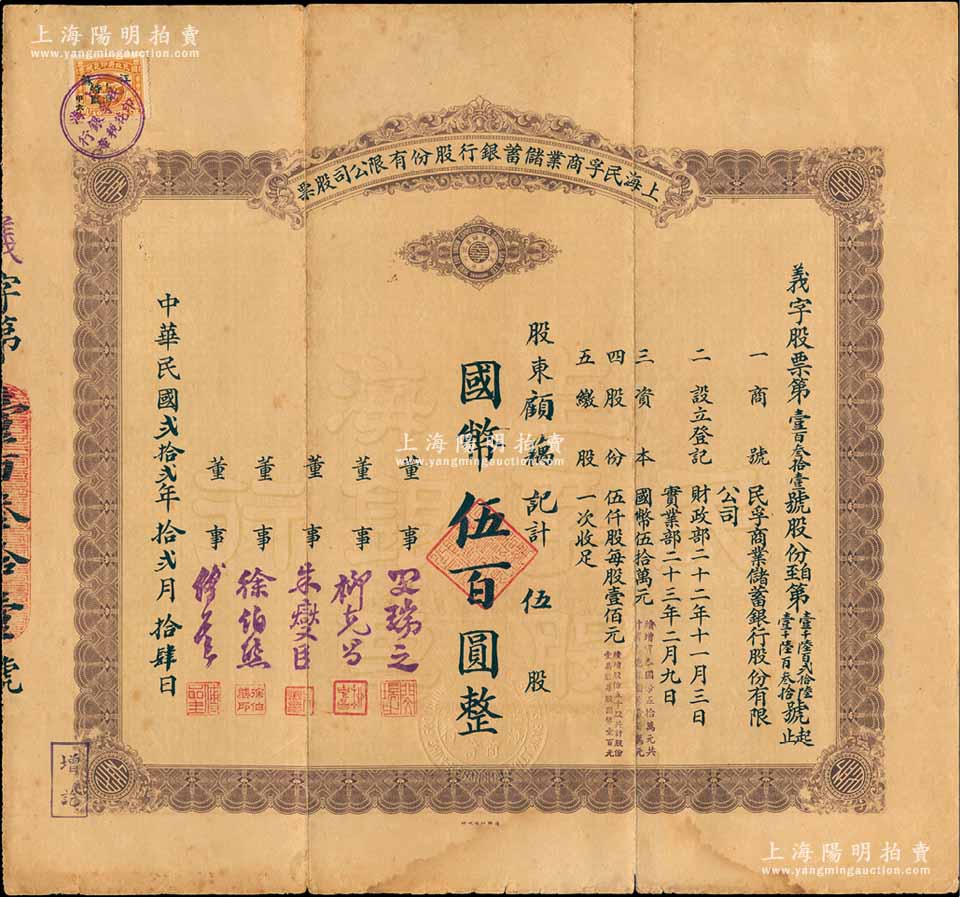 上海民孚商業儲蓄銀行股份有限公司股票
義字股票第壹百叁拾壹號股份自第壹千陸百弍拾陸號起
至壹千陸百叁拾號止
一商號 民孚商業儲蓄銀行股份有限
公司
二設立登記 財政部二十二年十一月三日
實業部二十三年二月九日
三資本 國幣伍拾萬元
四股份 伍仟股每股壹佰元
五繳股 一次收足
股東顧 記計 伍 股
國幣伍百圓整
董事
董事 柳
董事 朱燮臣
董事 徐伯熊
董事
徐伯熊印
中華民國弍拾弍年拾弍月拾肆日
義字第壹百叁拾壹號
上海陽明拍賣
www.yangmingauction.com
上海陽明拍賣
www.yangmingauction.com
上海陽明拍賣
www.yangmingauction.com